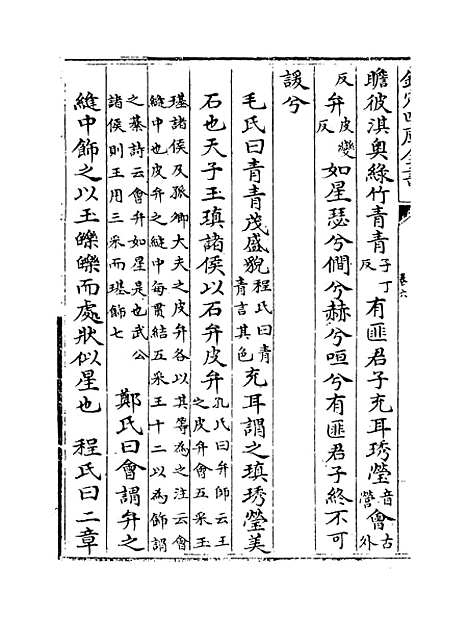 欽定四庫全書 卷六
瞻彼淇奥綠竹青青子丁反有匪君子充耳琇瑩音營會古外
反弁皮變反如星瑟兮僩兮赫兮咺兮有匪君子終不可
諼兮
毛氏曰青青茂盛貌程氏曰青青言其色充耳謂之瑱琇瑩美
石也天子玉瑱諸侯以石弁皮弁孔氏曰弁師云王之皮弁會五采玉
璂諸侯及孤卿大夫之皮弁各以其等為之注云會
縫中也皮弁之縫中每貫結五采玉十二以為飾謂
之綦詩云會弁如星是也武公諸侯則玉用三采而璂飾七 鄭氏曰會謂弁之
縫中飾之以玉皪皪而處狀似星也 程氏曰二章